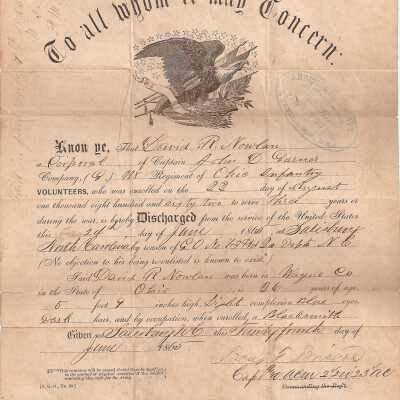 To all whom it may Concern:
Know ye, That David R Nowlan
a Corporal of Captain John D
Company, (G) Regiment of Ohio Infantry
VOLUNTEERS, who was enrolled on the 22 day of August
one thousand eight hundred and sixty two to serve three years or
during the war, is hereby Discharged from the service of the United States
this 24th day of June 1865, at Salisbury
North Carolina by reason of G O No Dept N. C.
(No objection to his being re-enlisted is known to exist.)
Said David R Nowlan was born in Wayne Co
in the State of Ohio is 26 years of age
5 feet 9 inches high, Light complexion Blue eyes
Dark hair, and by occupation, when enrolled, a Blacksmith
Given at Salisbury N C this Twenty fourth day of
June 1865
Commanding the Reg't.